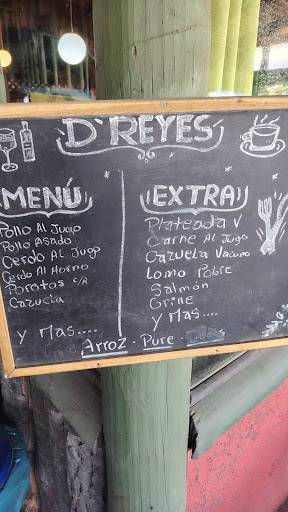 D'REYES
MENÚ
Pollo Al Jugo
Pollo Asado
Cerdo Al Jugo
Cerdo Al Horno
Porotos C/R
Cazuela
Y Mas....
EXTRA
Plateada V
Carne Al Jugo
Cazuela Vacuno
Lomo Pobre
Salmón
Grille
Y Mas....
Arroz - Pure -